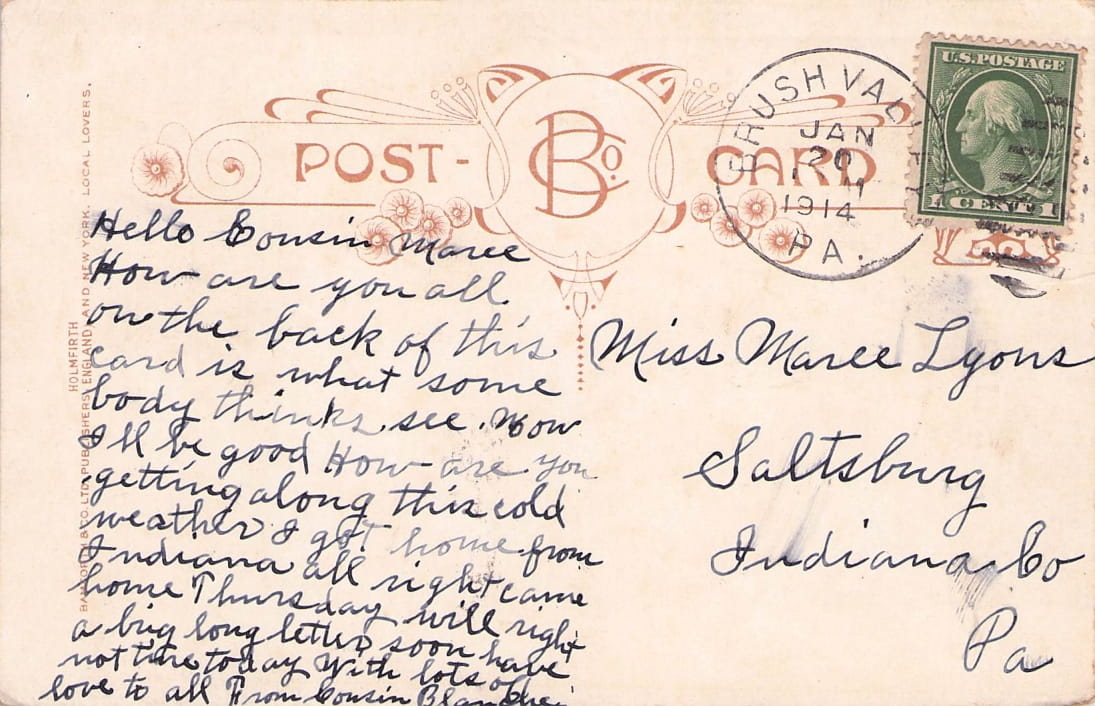 POST-CARD
B Co.
BRUSH VAL
JAN
20
1914
PA.
U.S. POSTAGE
1 CENT 1
HOLMFIRTH
BAMFORTH & CO. LTD. PUBLISHERS, ENGLAND, AND NEW YORK. LOCAL LOVERS.
Hello Cousin Maree
How are you all
on the back of this
card is what some
body thinks, see. Now
I'll be good How are you
getting along this cold
weather I got home from
Indiana all right came
home Thursday will right
a big long letter soon have
not time today With lots of
love to all From Cousin Blanche
Miss Maree Lyons
Saltsburg
Indiana Co
Pa